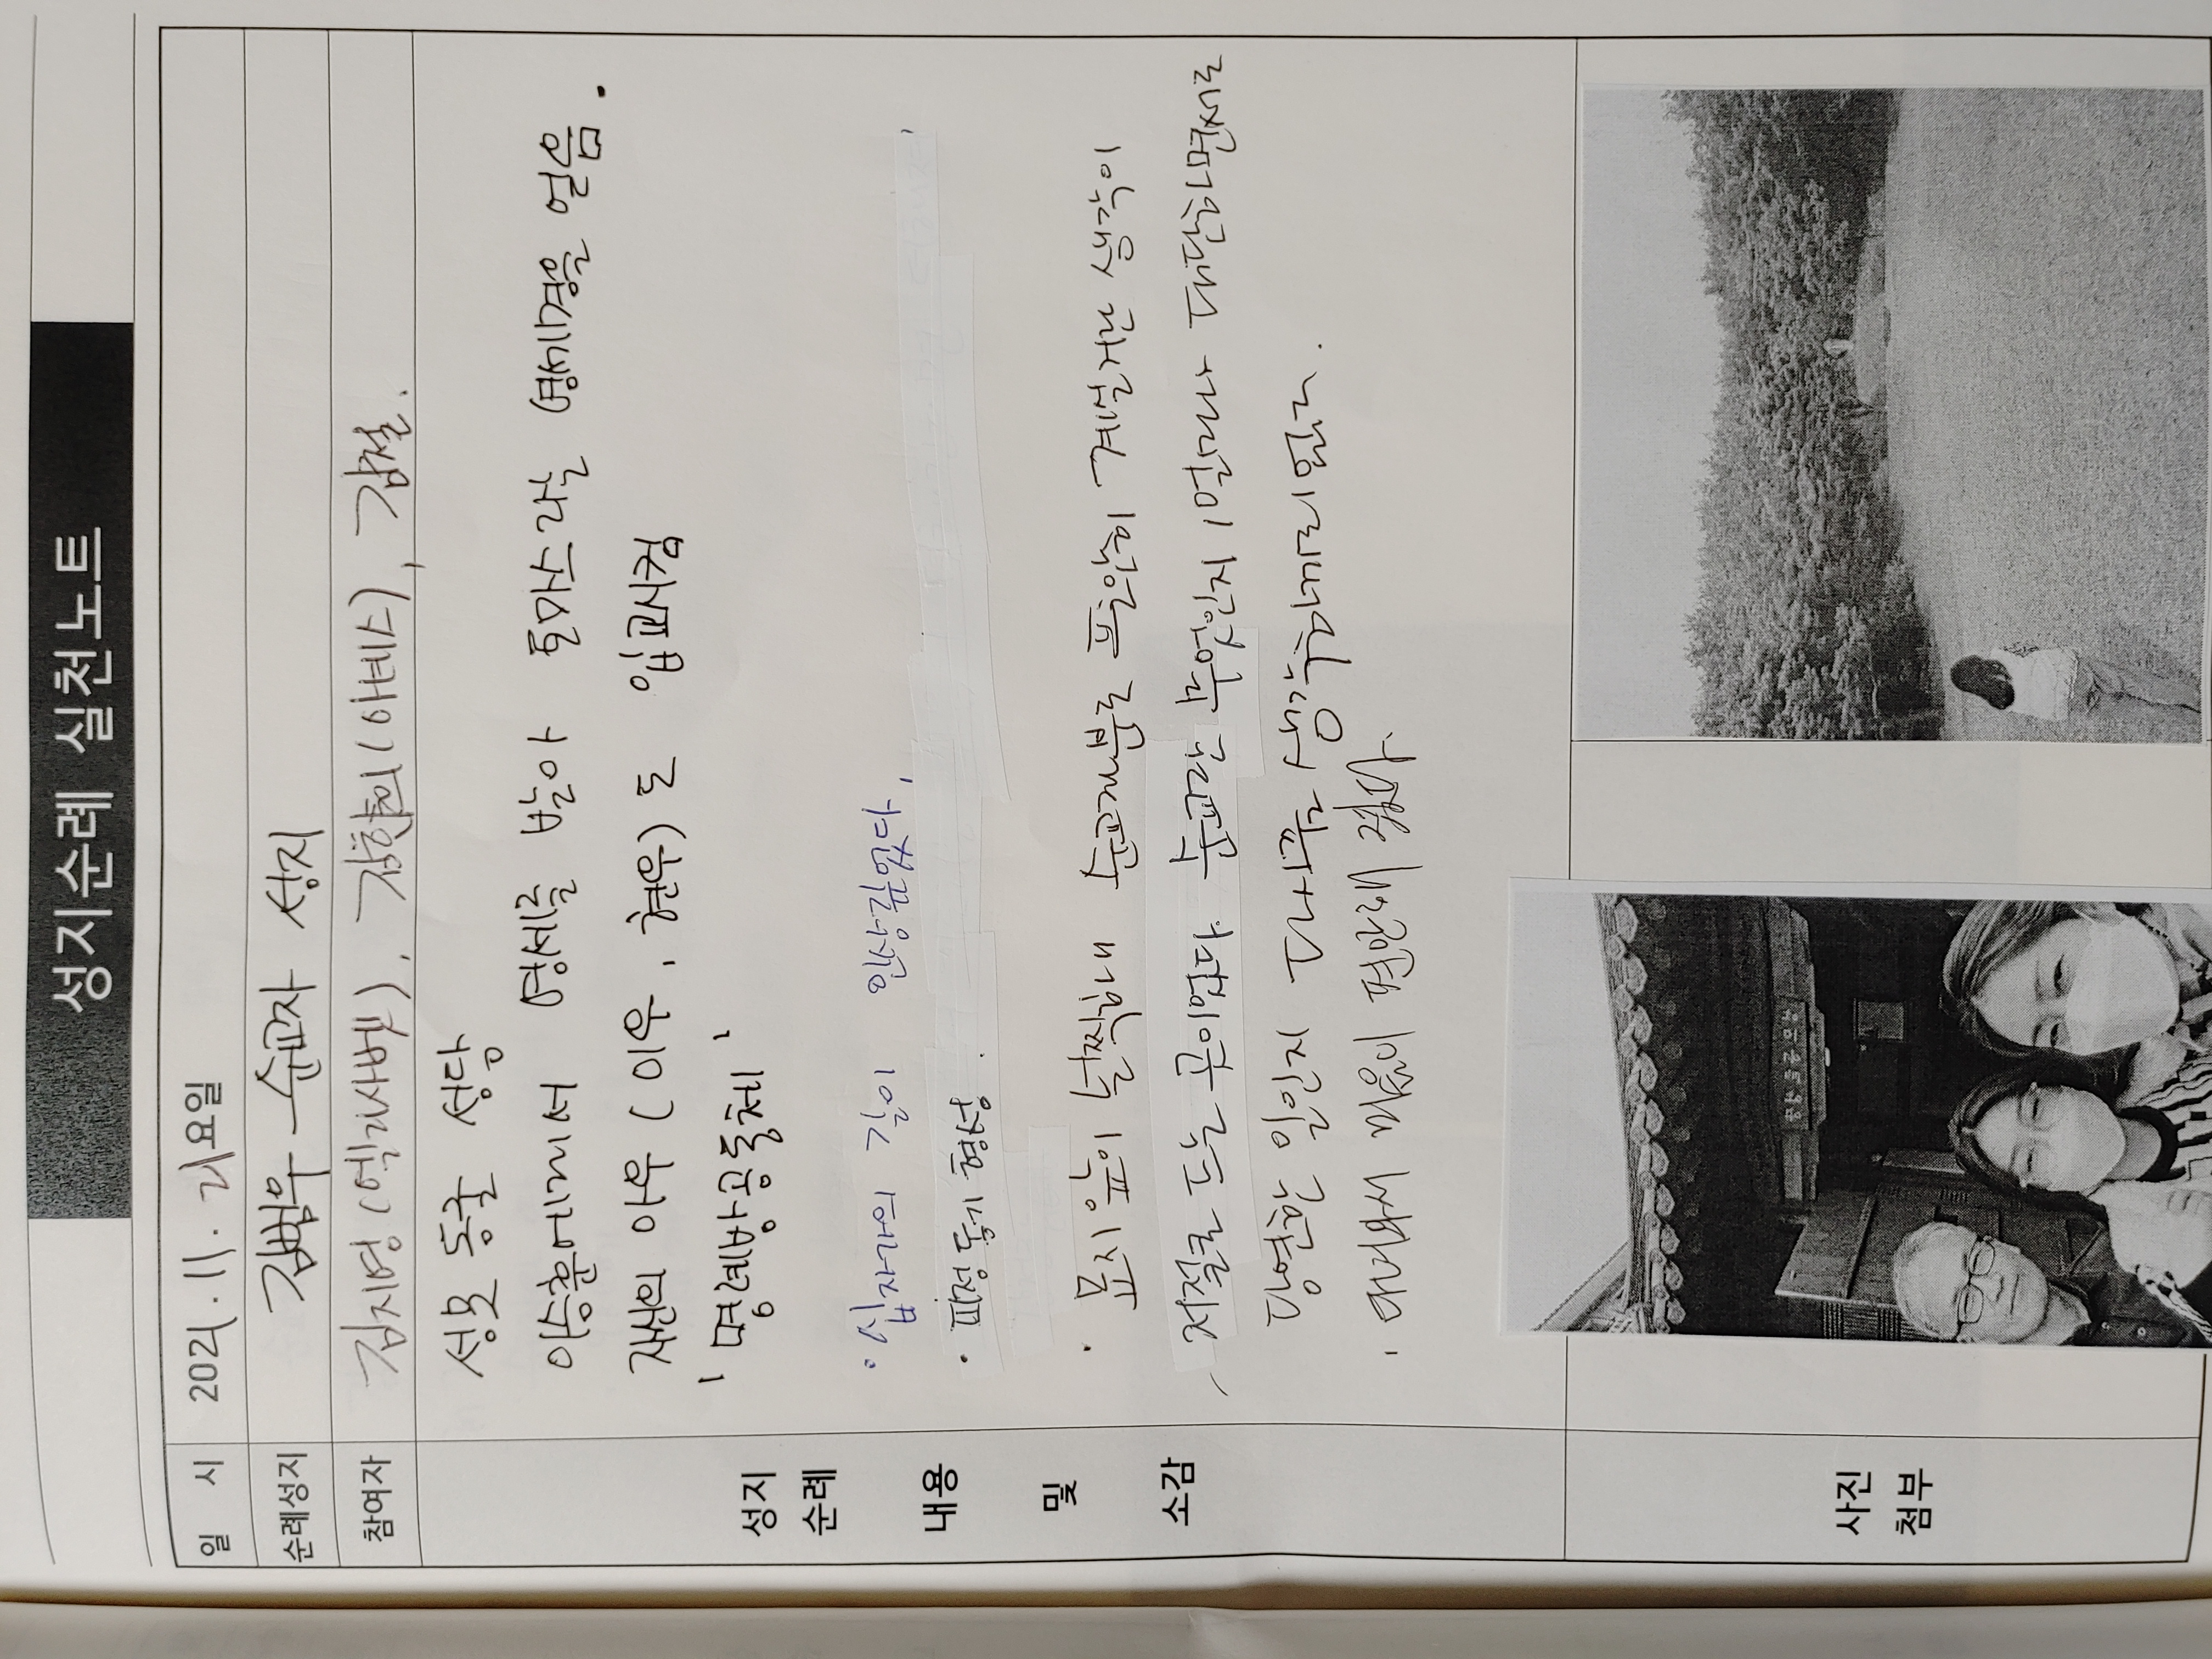 성지순례 실천노트
일 시 2021. 11. 21요일
순례성지 김범우 순교자 성지
참여자 김지영(엘리사벳), (아녜스), 김철.
성모 동굴 성당
이승훈에게서 영세를 받아 토마스라는 영세명을 얻음.
자신의 아우 (이우, 현우)도 입교시킴
'명례방공동체'
성지
순례
내용
및
소감
· 십자가의 길이 인상깊었다.
· 피정동기 형성.
· 묘지 앞이 널찍하네 순교자분도 편안히 계실거란 생각이
저절로 드는 곳이었다. 순교란 무엇인지, 얼마나 대단하면서도
당연한 일인지 다시금 생각하게 되었다.
· 다녀와서 마음이 편안해 졌다.
사진
첨부
성모동굴성당